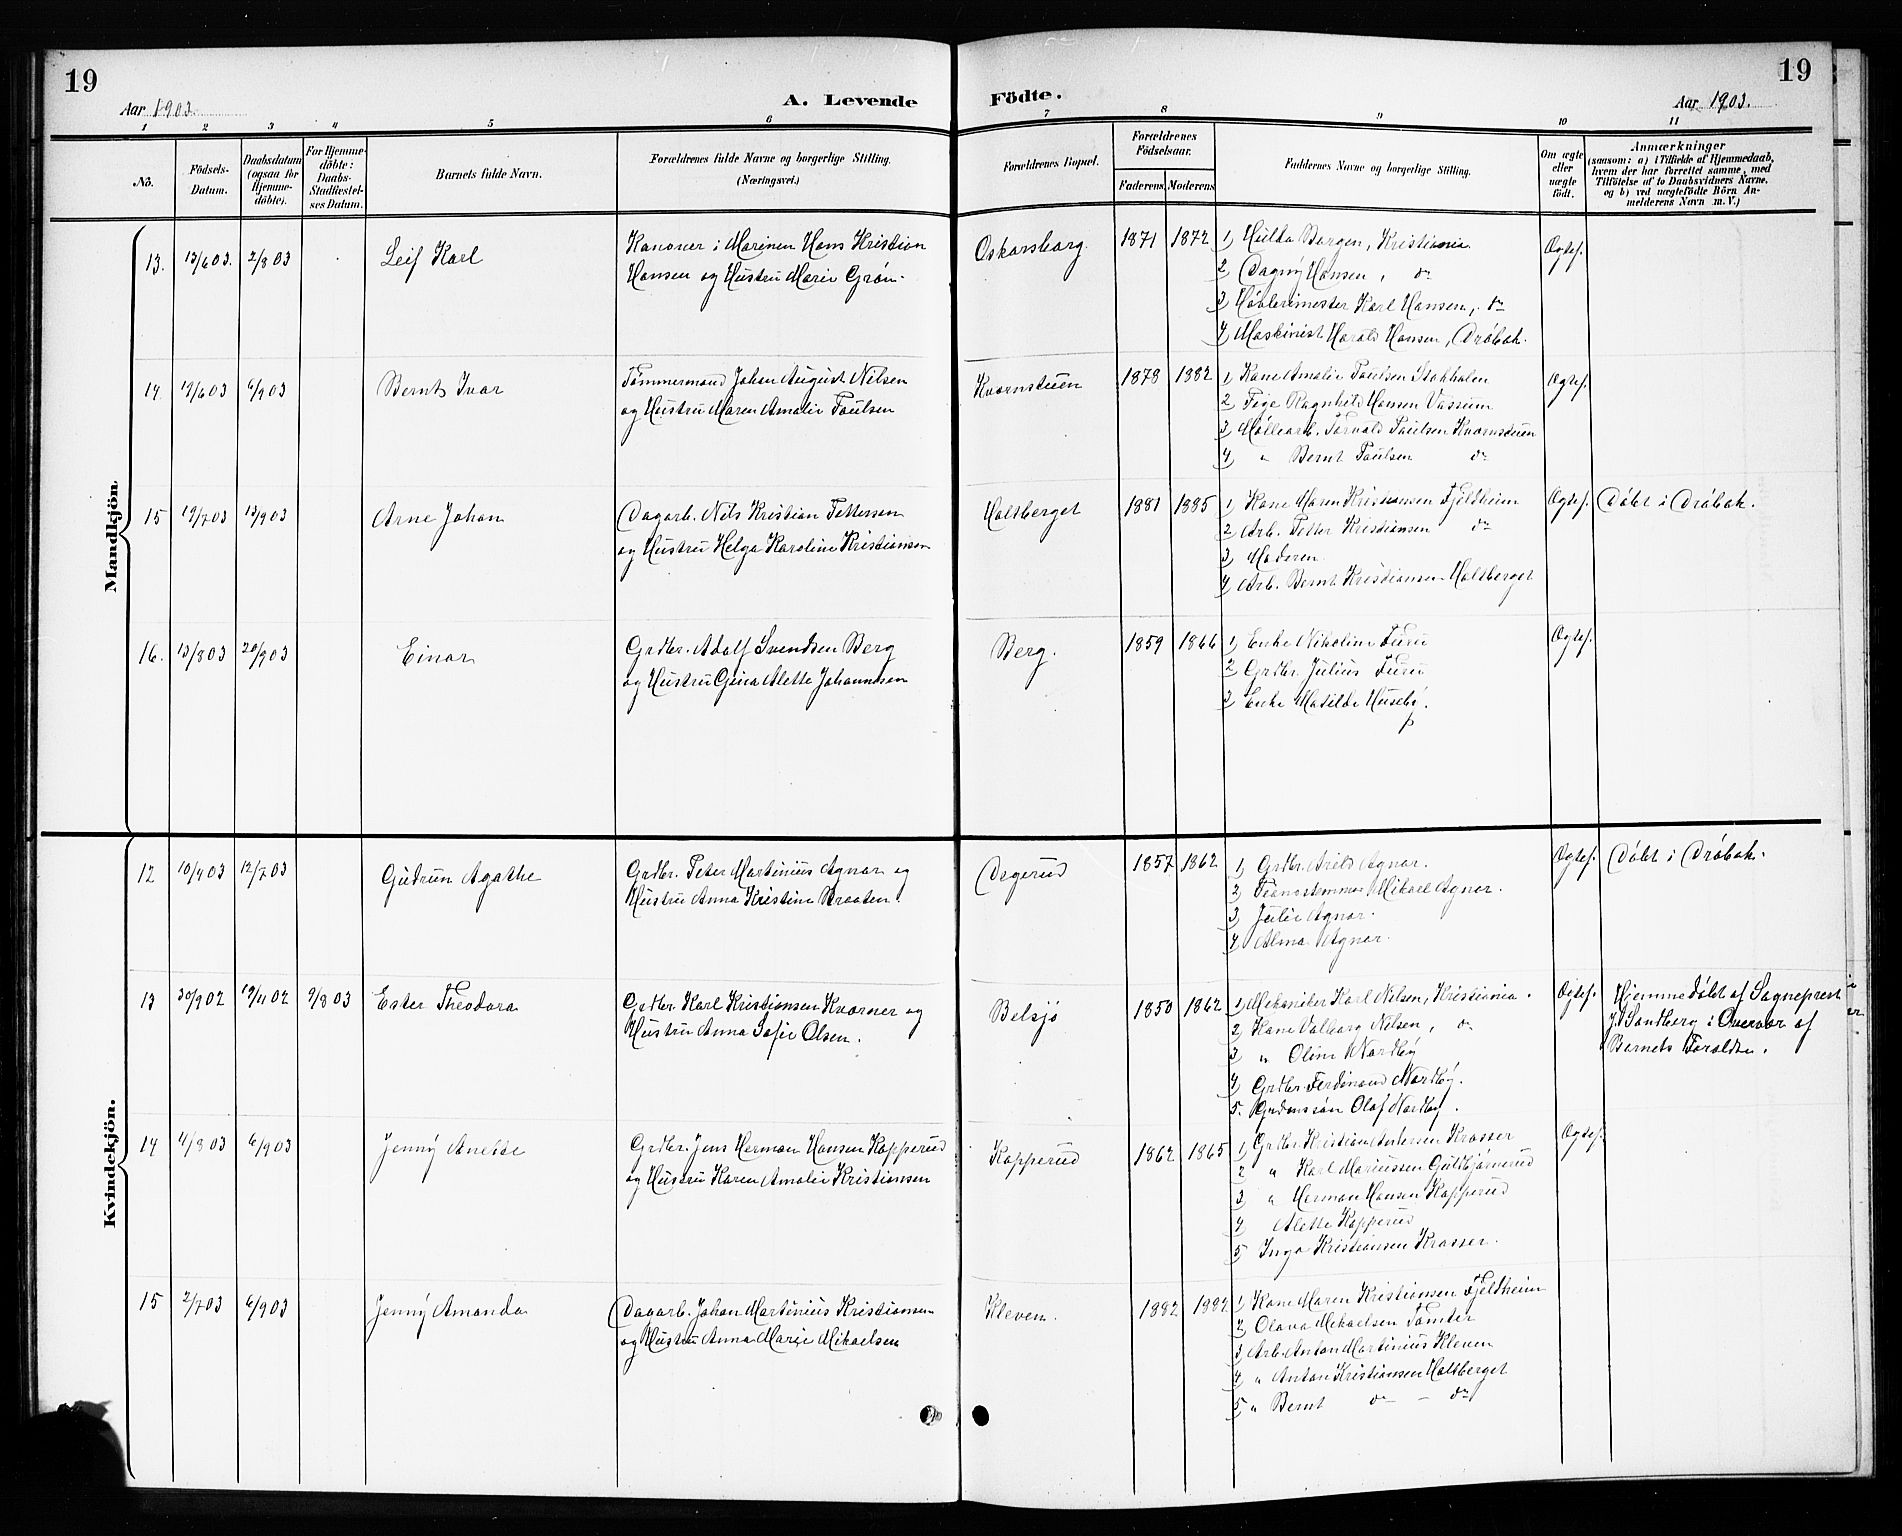 19
Aar 1903.
A. Levende
Födte.
Aar 1903.
19
1 2 3 4 5 6 7 8 9 10 11
No.
Födsels-
Datum.
Daabsdatum
(ogsaa for
Hjemme-
döbte).
For Hjemme-
döbte:
Daabs-
Stadfæstel-
ses Datum.
Barnets fulde Navn.
Forældrenes fulde Navne og borgerlige Stilling.
(Næringsvei.)
Forældrenes Bopæl.
Forældrenes
Födselsaar.
Faderens. Moderens.
Faddernes Navne og borgerlige Stilling.
Om ægte
eller
uægte
födt.
Anmærkninger
(saasom: a) i Tilfælde af Hjemmedaab,
hvem der har forrettet samme, med
Tilföielse af to Daabsvidners Navne,
og b) ved uægtefödte Börn An-
melderens Navn m. V.)
Mandkjön
13. 13/6 03. 2/8 03
Leif Karl
Kanoner i Marinen Hans Kristian
Hansen og Hustru Marie Grøn.
Oskarsborg.
1871 1872
1) Hulda Borgen, Kristiania
2) Dagny Hansen, do
3) Høvlerimester Karl Hansen, do
4) Maskinist Harald Hansen, Drøbak.
Ægtef.
14 19/6 03 6/9 03
Bernt Ivar
Tømmermand Johan August Nilsen
og Hustru Maren Amalie Paulsen
Kvernstuen
1878 1882
1) Kone Amalie Paulsen Stokholen
2) Pige Ragnhild Hansen Vassum
3) Møllearb. Torvald Paulsen Kvernstuen
4) " Bernt Paulsen do
Ægtef.
15 19/7 03 13/9 03
Arne Johan
Dagarb. Nils Kristian Pettersen
og Hustru Helga Karoline Kristiansen
Holtberget
1881 1885
1) Kone Maren Kristiansen Fjeldheim
2) Arb. Petter Kristiansen do
3) Moderen.
4) Arb. Bernt Kristiansen Holtberget
Ægtef.
Døbt i Drøbak.
16. 13/8 03 20/9 03
Einar
Grdbr. Adolf Svendsen Berg
og Hustru Gina Alette Johannesen
Berg.
1859 1866
1) Enke Nikoline Furu
2) Grdbr. Julius Furu
3) Enke Matilde Huseby.
Ægtef.
Kvindekjön.
12 10/4 03 12/7 03
Gudrun Agathe
Grdbr. Peter Martinius Agnor og
Hustru Anna Kristine Braaten.
Degerud
1857 1862
1) Grdbr. Arild Agnor.
2) Pianostemmer Mikael Agnor.
3) Julie Agnor.
4) Alma Agnor.
Ægtef.
Døbt i Drøbak.
13 30/9 02 19/11 02 9/8 03
Ester Theodora
Grdbr. Karl Kristiansen Kverner og
Hustru Anna Sofie Olsen.
Belsjø
1850 1862
1) Mekaniker Karl Nilsen, Kristiania.
2) Kone Valborg Nilsen, do
3) " Oline Nordby
4) Grdbr. Ferdinand Nordby.
5. Grdmssøn Olaf Nordby.
Ægtef.
Hjemmedøbt af Sogneprest
J. Sandberg i Overvær af
Barnets Forældre.
14 4/8 03 6/9 03
Jenny Anette
Grdbr. Jens Herman Hansen Kopperud
og Hustru Karen Amalie Kristiansen
Kopperud
1862 1865
1) Grdbr. Kristian Andersen Krosser
2 " Karl Mariussen Guldbjørnerud
3) " Herman Hansen Kopperud
4 Alette Kopperud
5) Inga Kristiansen Krosser.
Ægtef.
15 2/7 03 6/9 03
Jenny Amanda
Dagarb. Johan Martinius Kristiansen
og Hustru Anna Marie Mikaelsen
Kleven.
1882 1882
1) Kone Maren Kristiansen Fjeldheim
2) Olava Mikaelsen Tomter
3) Arb. Anton Martinius Kleven
4) " Anton Kristiansen Holtberget
5) " Bernt do – do